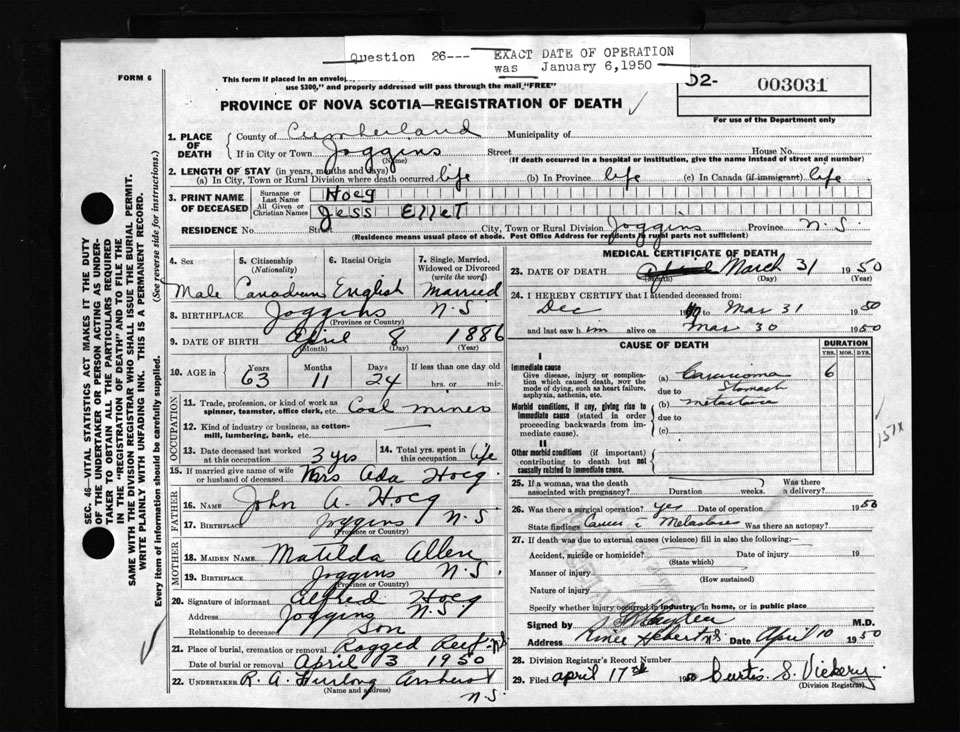 Question 26--- EXACT DATE OF OPERATION
was January 6,1950
FORM 6
This form if placed in an envelop
use $300," and properly addressed will pass through the mail "FREE"
PROVINCE OF NOVA SCOTIA—REGISTRATION OF DEATH
02- 003031
For use of the Department only
SEC. 46—VITAL STATISTICS ACT MAKES IT THE DUTY
OF THE UNDERTAKER OR PERSON ACTING AS UNDER-
TAKER TO OBTAIN ALL THE PARTICULARS REQUIRED
IN THE "REGISTRATION OF DEATH" AND TO FILE THE
SAME WITH THE DIVISION REGISTRAR WHO SHALL ISSUE THE BURIAL PERMIT.
WRITE PLAINLY WITH UNFADING INK. THIS IS A PERMANENT RECORD.
Every item of information should be carefully supplied. (See reverse side for instructions.)
1. PLACE OF DEATH
County of Cumberland Municipality of
If in City or Town Joggins Street House No.
(Name) (If death occurred in a hospital or institution, give the name instead of street and number)
2. LENGTH OF STAY (in years, months and days)
(a) In City, Town or Rural Division where death occurred life (b) In Province life (c) In Canada (if immigrant) life
3. PRINT NAME OF DECEASED
Surname or Last Name Hoeg
All Given or Christian Names Jess Ellet
RESIDENCE No. Street City, Town or Rural Division Joggins Province N.S.
(Residence means usual place of abode. Post Office Address for residents in rural parts not sufficient)
4. Sex 5. Citizenship (Nationality) 6. Racial Origin 7. Single, Married, Widowed or Divorced (write the word)
Male Canadian English Married
8. BIRTHPLACE Joggins N.S.
(Province or Country)
9. DATE OF BIRTH April 8 1886
(Month) (Day) (Year)
10. AGE in Years Months Days If less than one day old
63 11 24 hrs. or min.
OCCUPATION
11. Trade, profession, or kind of work as spinner, teamster, office clerk, etc. Coal miner
12. Kind of industry or business, as cotton-mill, lumbering, bank, etc. —
13. Date deceased last worked at this occupation 3 yrs 14. Total yrs. spent in this occupation life
15. If married give name of wife or husband of deceased Mrs Ada Hoeg
FATHER
16. Name John A. Hoeg
17. Birthplace Joggins N.S.
(Province or Country)
MOTHER
18. MAIDEN NAME Matilda Allen
19. BIRTHPLACE Joggins N.S.
(Province or Country)
20. Signature of informant Alfred Hoeg
Address Joggins N.S.
Relationship to deceased Son
21. Place of burial, cremation or removal Ragged Reef N.S
Date of burial or removal April 3 1950
22. UNDERTAKER R. A. Furlong Amherst
(Name and address) N.S.
MEDICAL CERTIFICATE OF DEATH
23. DATE OF DEATH April March 31 1950
(Month) (Day) (Year)
24. I HEREBY CERTIFY that I attended deceased from:
Dec 19 to Mar 31 1950
and last saw him alive on Mar 30 1950
CAUSE OF DEATH DURATION
YRS. MOS. DYS.
I
Immediate cause
Give disease, injury or complication which caused death, not the mode of dying, such as heart failure, asphyxia, asthenia, etc.
(a) Carcinoma 6
due to Stomach
Morbid conditions, if any, giving rise to immediate cause (stated in order proceeding backwards from immediate cause).
(b) metastasis
due to
(c)
II
Other morbid conditions (if important) contributing to death but not causally related to immediate cause.
151X
25. If a woman, was the death associated with pregnancy? Duration weeks. Was there a delivery?
26. Was there a surgical operation? yes Date of operation 1950
State findings Cancer Metastases Was there an autopsy?
27. If death was due to external causes (violence) fill in also the following:—
Accident, suicide or homicide? Date of injury 19
(State which)
Manner of injury
(How sustained)
Nature of injury
Specify whether injury occurred in industry, in home, or in public place
Signed by M.D.
Address River Hebert N.S. Date April 10 1950
28. Division Registrar's Record Number
29. Filed April 17th 1950 Curtis. S. Vickery
(Division Registrar)